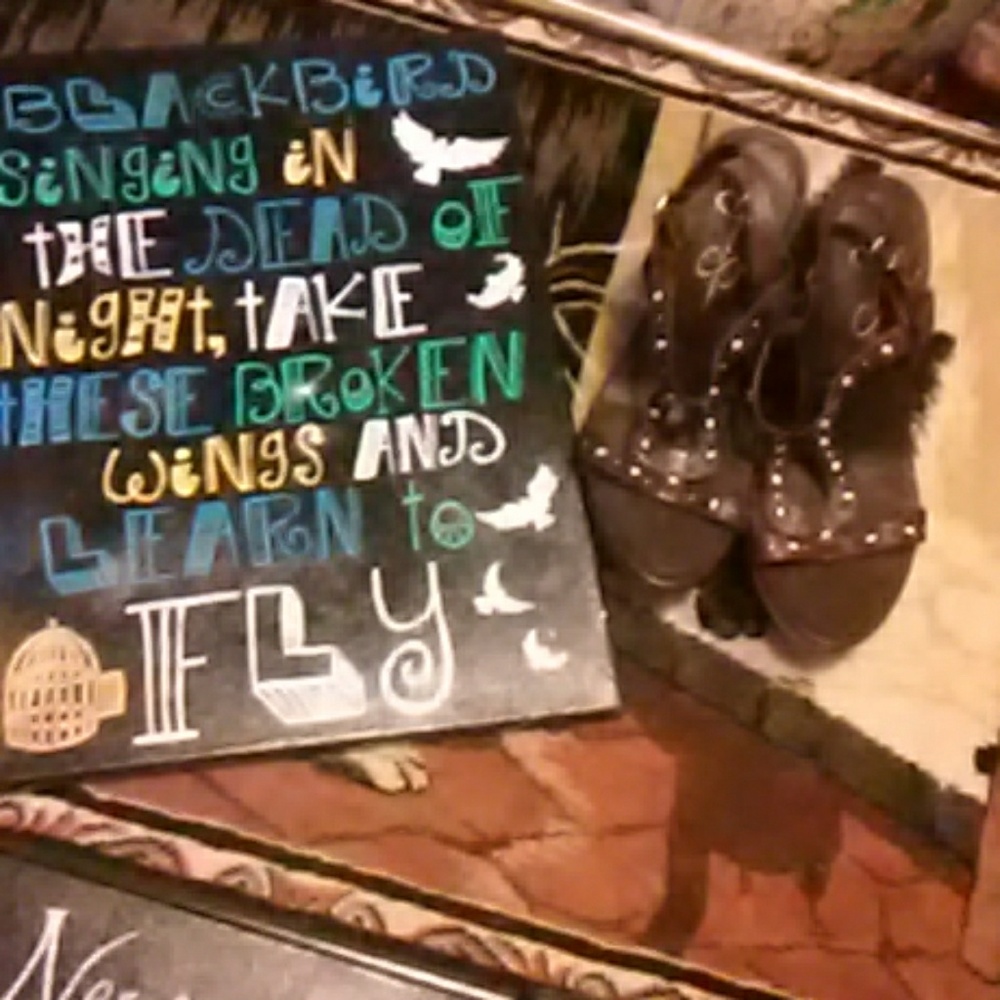 BLACKBiRD
SiNgiNg iN
tHE DEAD OF
NigHt, tAKE
tHESE BROKEN
WiNgS AND
LEARN to
FLy